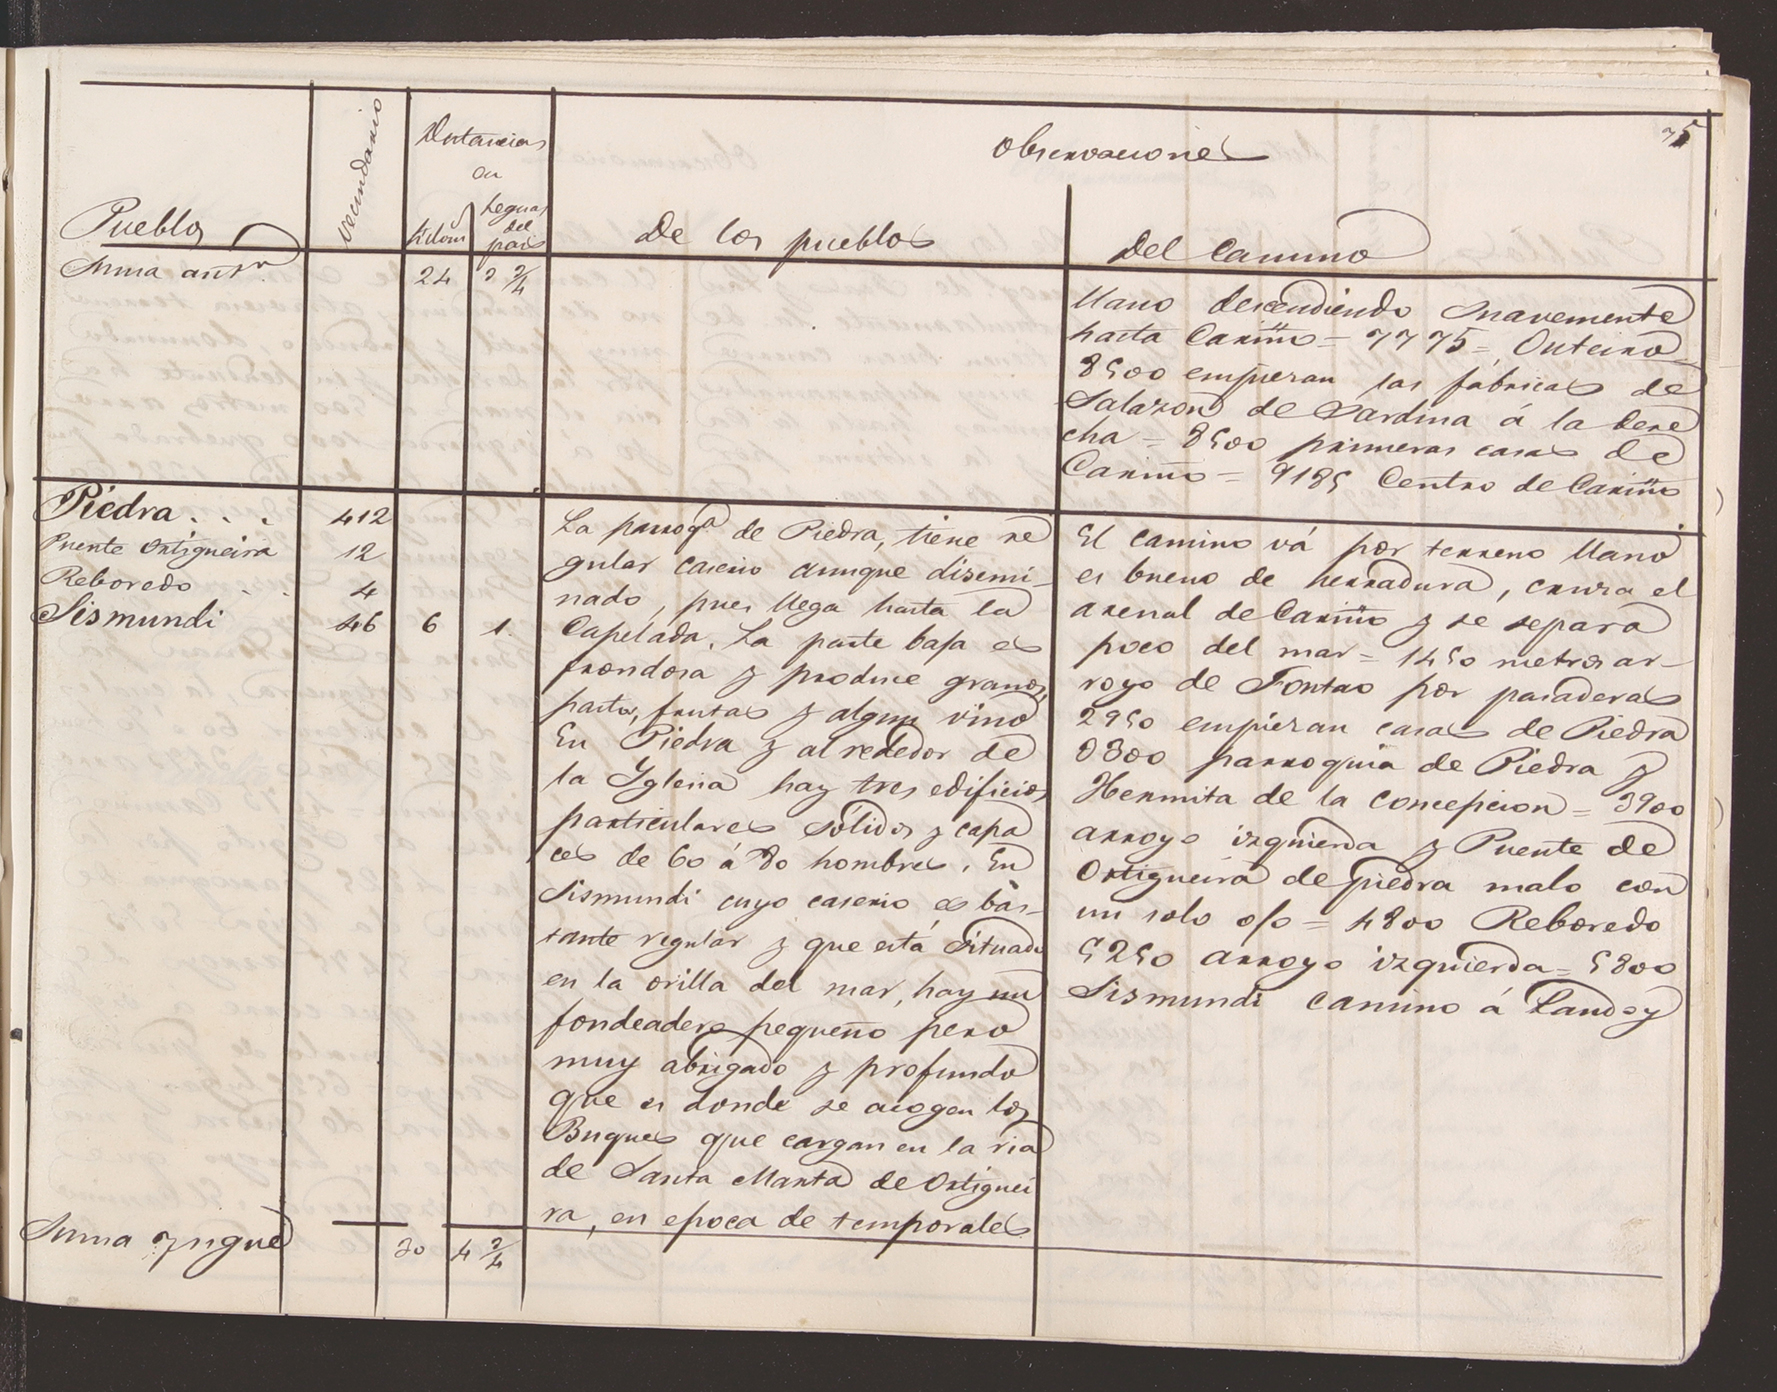 75
Observaciones
vecindario
Distancias
en
Pueblos
Kilom
Leguas
del
pais
De los pueblos
Del camino
Suma antr
24
3 3/4
Llano descendiendo suavemente
hasta Cariño = 7775 = Outeiro
8500 empiezan las fábricas de
Salazon de Sardina á la dere
cha = 8500 primeras casas de
Cariño = 9185 Centro de Cariño
Piedra . . .
412
Puente Ortigueira
12
Reboredo . .
4
Sismundi
46
6
1.
La parroqa de Piedra, tiene re
gular caserio aunque disemi-
nado, pues llega hasta la
Capelada. La parte baja es
frondosa y produce granos,
pastos, frutas y algun vino
En Piedra y al rededor de
la Yglesia hay tres edificios
particulares sólidos y capa
ces de 60 á 80 hombres. En
Sismundi cuyo caserio es bas-
tante regular y que está situado
en la orilla del mar, hay un
fondeadero pequeño pero
muy abrigado y profundo
que es donde se acogen los
Buques que cargan en la ria
de Santa Marta de Ortiguei
ra, en epoca de temporales
El camino vá por terreno llano
es bueno de herradura, cruza el
arenal de Cariño y se separa
poco del mar = 1450 metros ar-
royo de Fontao por pasaderas
2950 empiezan casas de Piedra
3300 parroquia de Piedra y
Hermita de la Concepcion = 3900
arroyo izquierda y Puente de
Ortigueira de piedra malo con
un solo ojo = 4800 Reboredo
5250 arroyo izquierda = 5800
Sismundi camino á Landoy
Suma y sigue
30
4 3/4